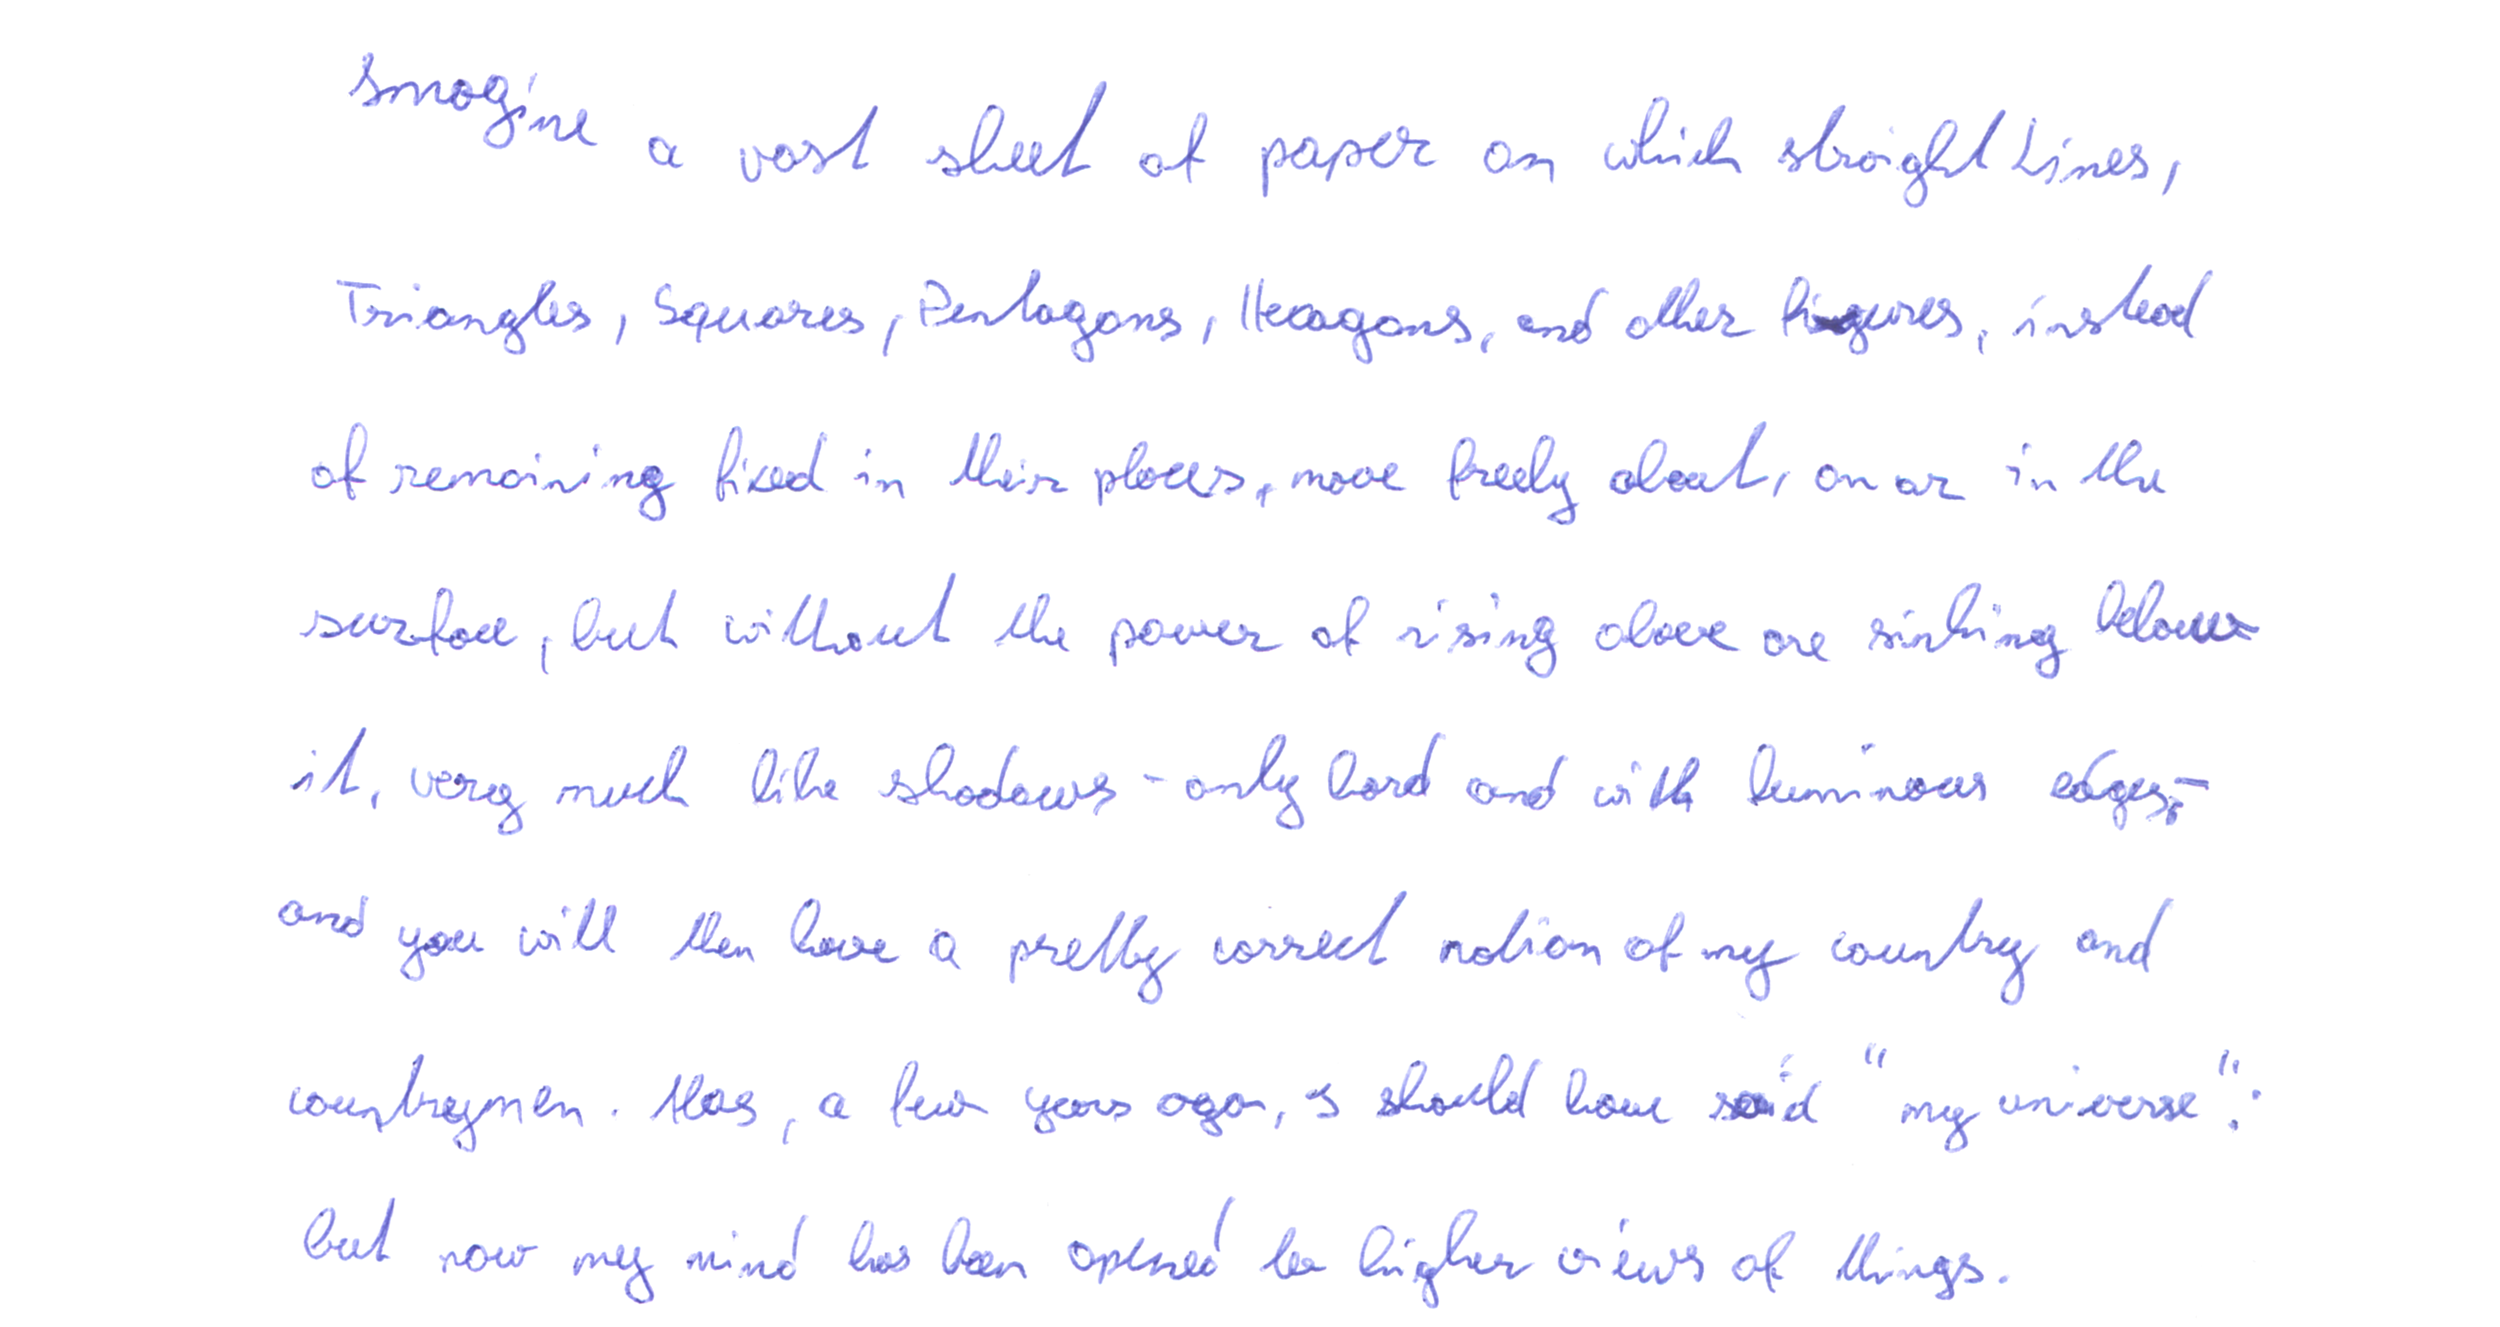 Imagine a vast sheet of paper on which straight Lines,
Triangles, Squares, Pentagons, Hexagons, and other figures, instead
of remaining fixed in their places, move freely about, on or in the
surface, but without the power of rising above ore sinking below
it, very much like shadows - only hard and with luminous edges -
and you will then have a pretty correct notion of my country and
countrymen. Alas, a few years ago, I should have said "my universe":
but now my mind has been opened to higher views of things.